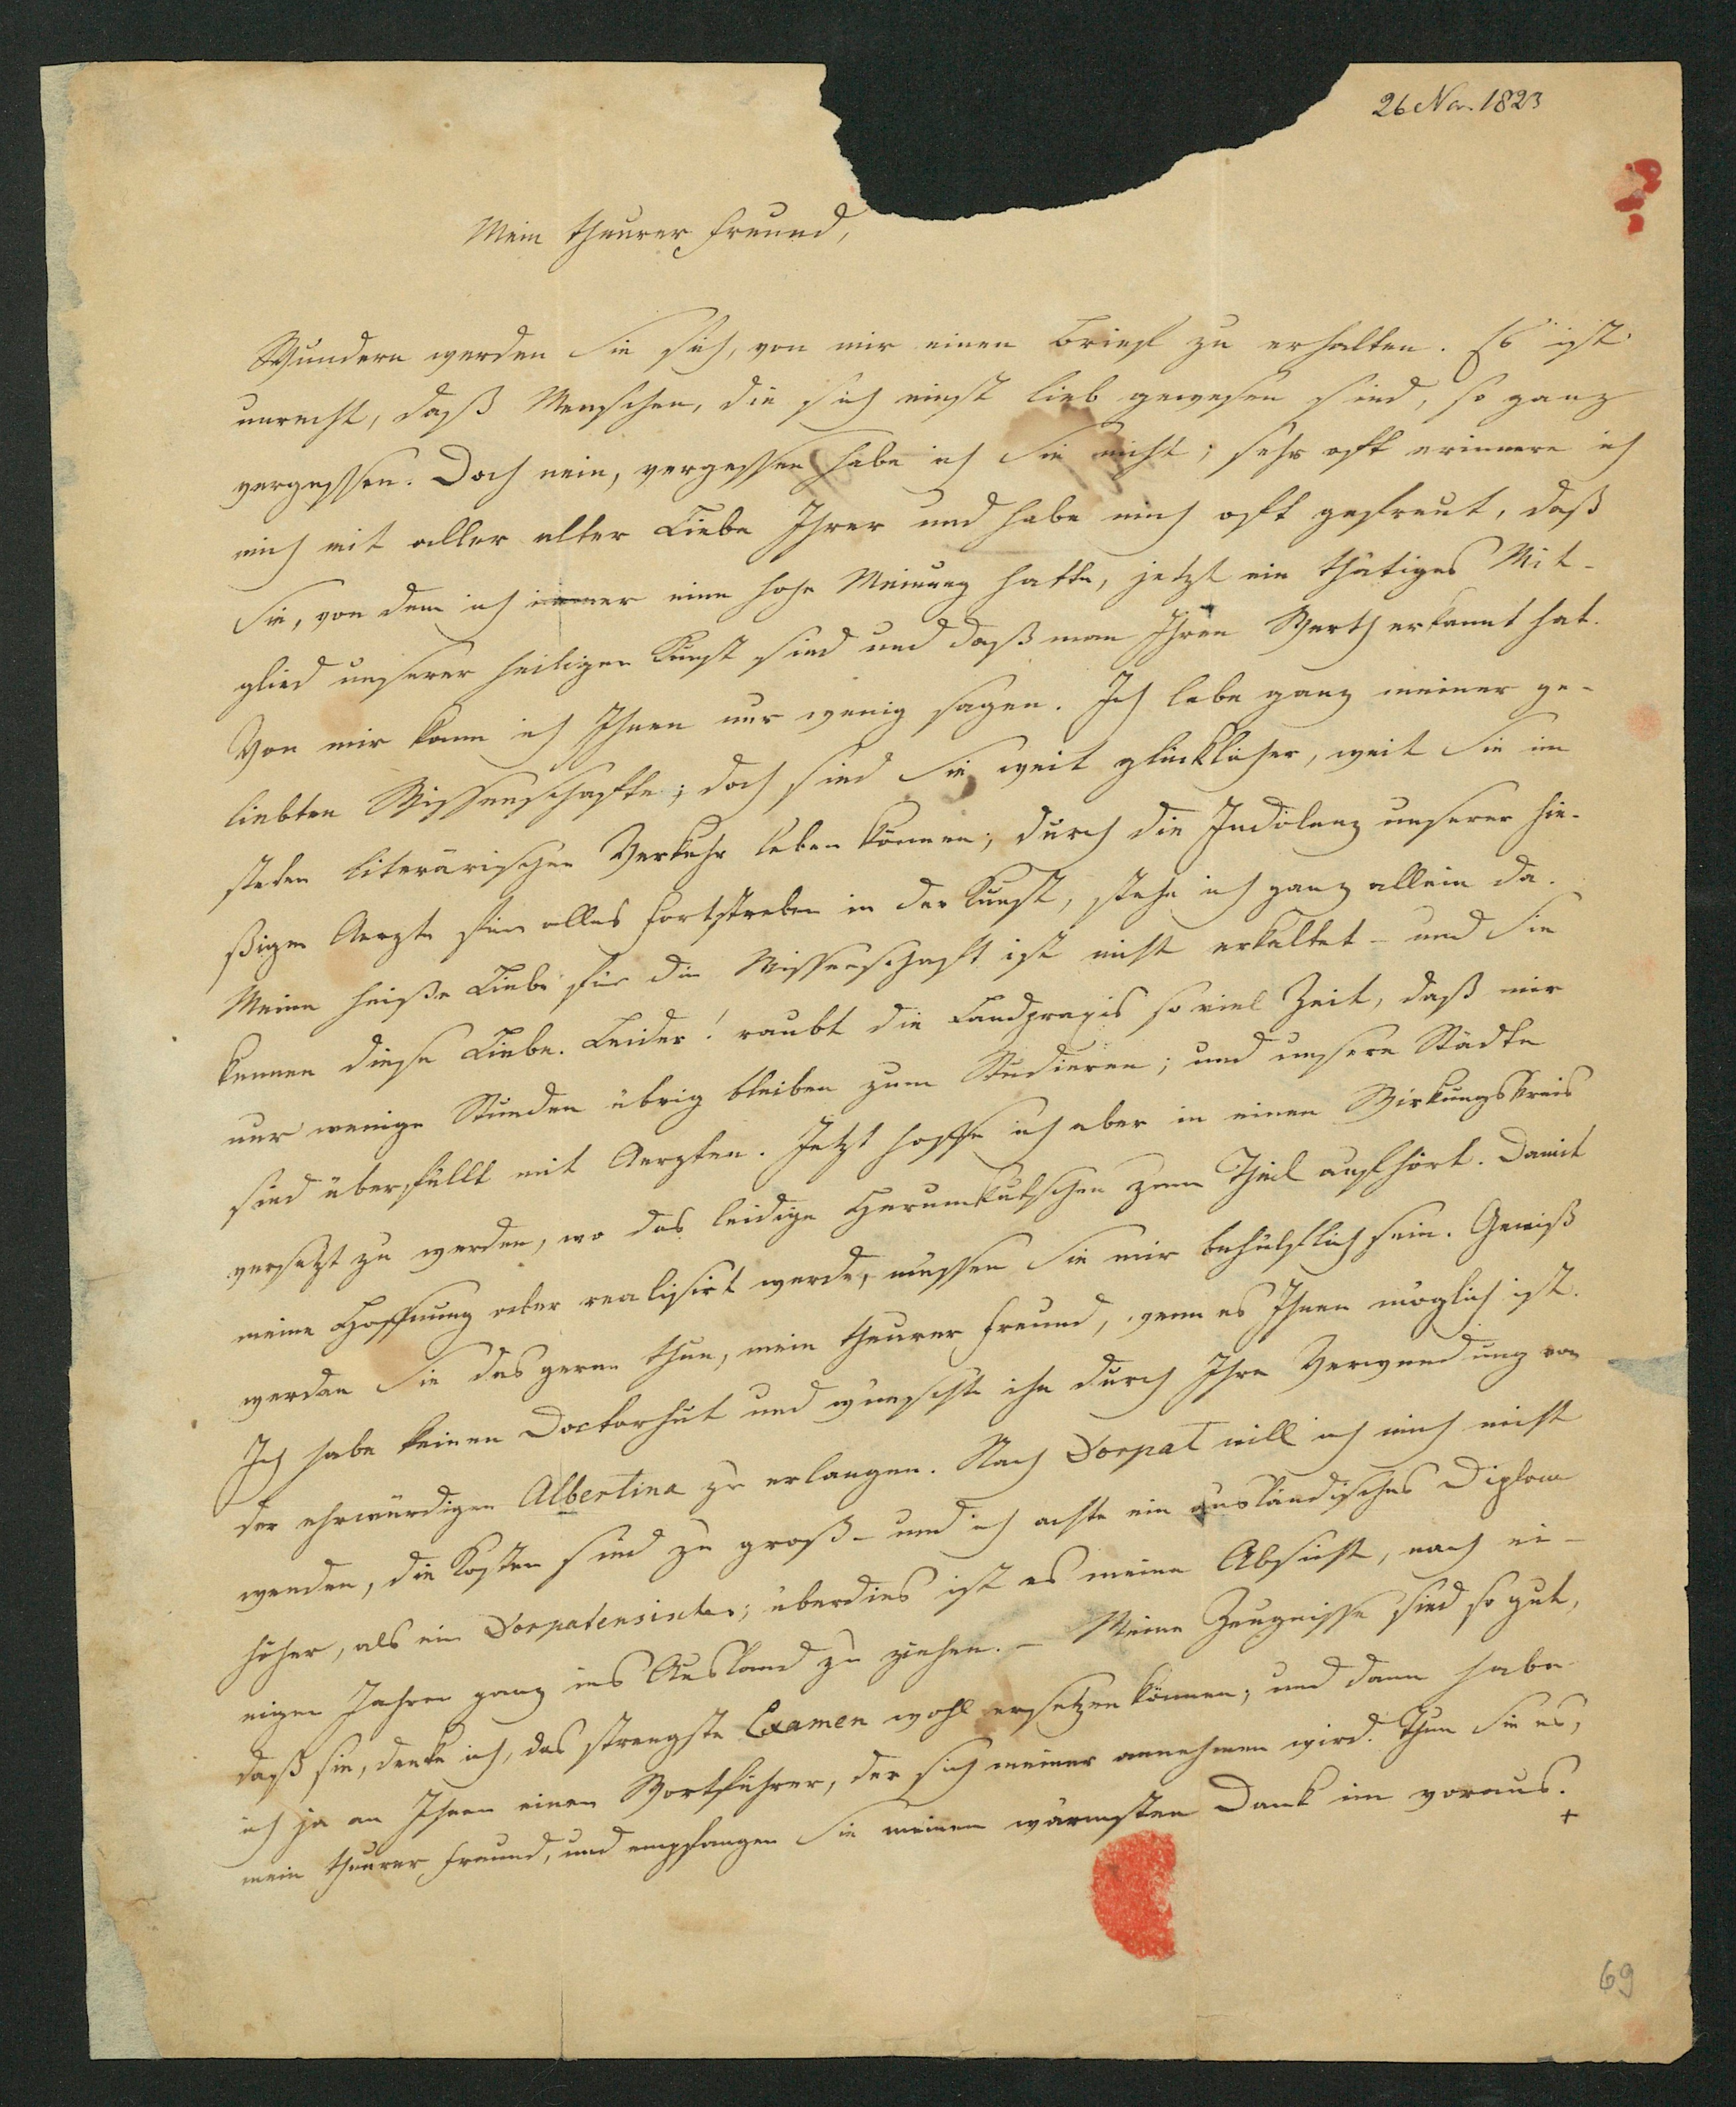 26 Nov. 1823
Mein theurer Freund,
Wundern werden Sie sich, von mir einen Brief zu erhalten. Es ist
unrecht, daß Menschen, die sich einst lieb gewesen sind, so ganz
vergessen. Doch nein, vergessen habe ich Sie nicht; sehr oft erinnere ich
mich mit aller alter Liebe Ihrer und habe mich oft gefreut, daß
Sie, von dem ich immer eine hohe Meinung hatte, jetzt ein thätiges Mit-
glied unserer heiligen Kunst sind und daß man Ihren Werth erkannt hat.
Von mir kann ich Ihnen nur wenig sagen. Ich lebe ganz meiner ge-
liebten Wissenschaft; doch sind Sie weit glücklicher, weil Sie im
steten literärischen Verkehr leben können; durch die Indolenz unserer hie-
sigen Aerzte für alles Fortstreben in der Kunst, stehe ich ganz allein da.
Meine heiße Liebe für die Wissenschaft ist nicht erkaltet – und Sie
kennen diese Liebe. Leider! raubt die Landpraxis so viel Zeit, daß mir
nur wenige Stunden übrig bleiben zum Studieren; und unsere Städte
sind überfüllt mit Aerzten. Jetzt hoffe ich aber in einen Wirkungskreis
versetzt zu werden, wo das leidige Herumkutschen zum Theil aufhört. Damit
meine Hoffnung aber realisirt werde, müssen Sie mir behülflich sein. Gewiß
werden Sie das gerne thun, mein theurer Freund, wenn es Ihnen möglich ist.
Ich habe keinen Doctorhut und wünschte ihn durch Ihre Verwendung von
der ehrwürdigen Albertina zu erlangen. Nach Dorpat will ich mich nicht
wenden, die Kosten sind zu groß – und ich achte ein ausländisches Diplom
höher, als ein Dorpatensisches; überdies ist es meine Absicht, nach ei-
nigen Jahren ganz ins Ausland zu ziehen. – Meine Zeugnisse sind so gut,
daß sie, denke ich, das strengste Examen wohl ersetzen können; und dann habe
ich ja an Ihnen einen Wortführer, der sich meiner annehmen wird. Thun Sie es,
mein theurer Freund, und empfangen Sie meinen wärmsten Dank im voraus. +
69